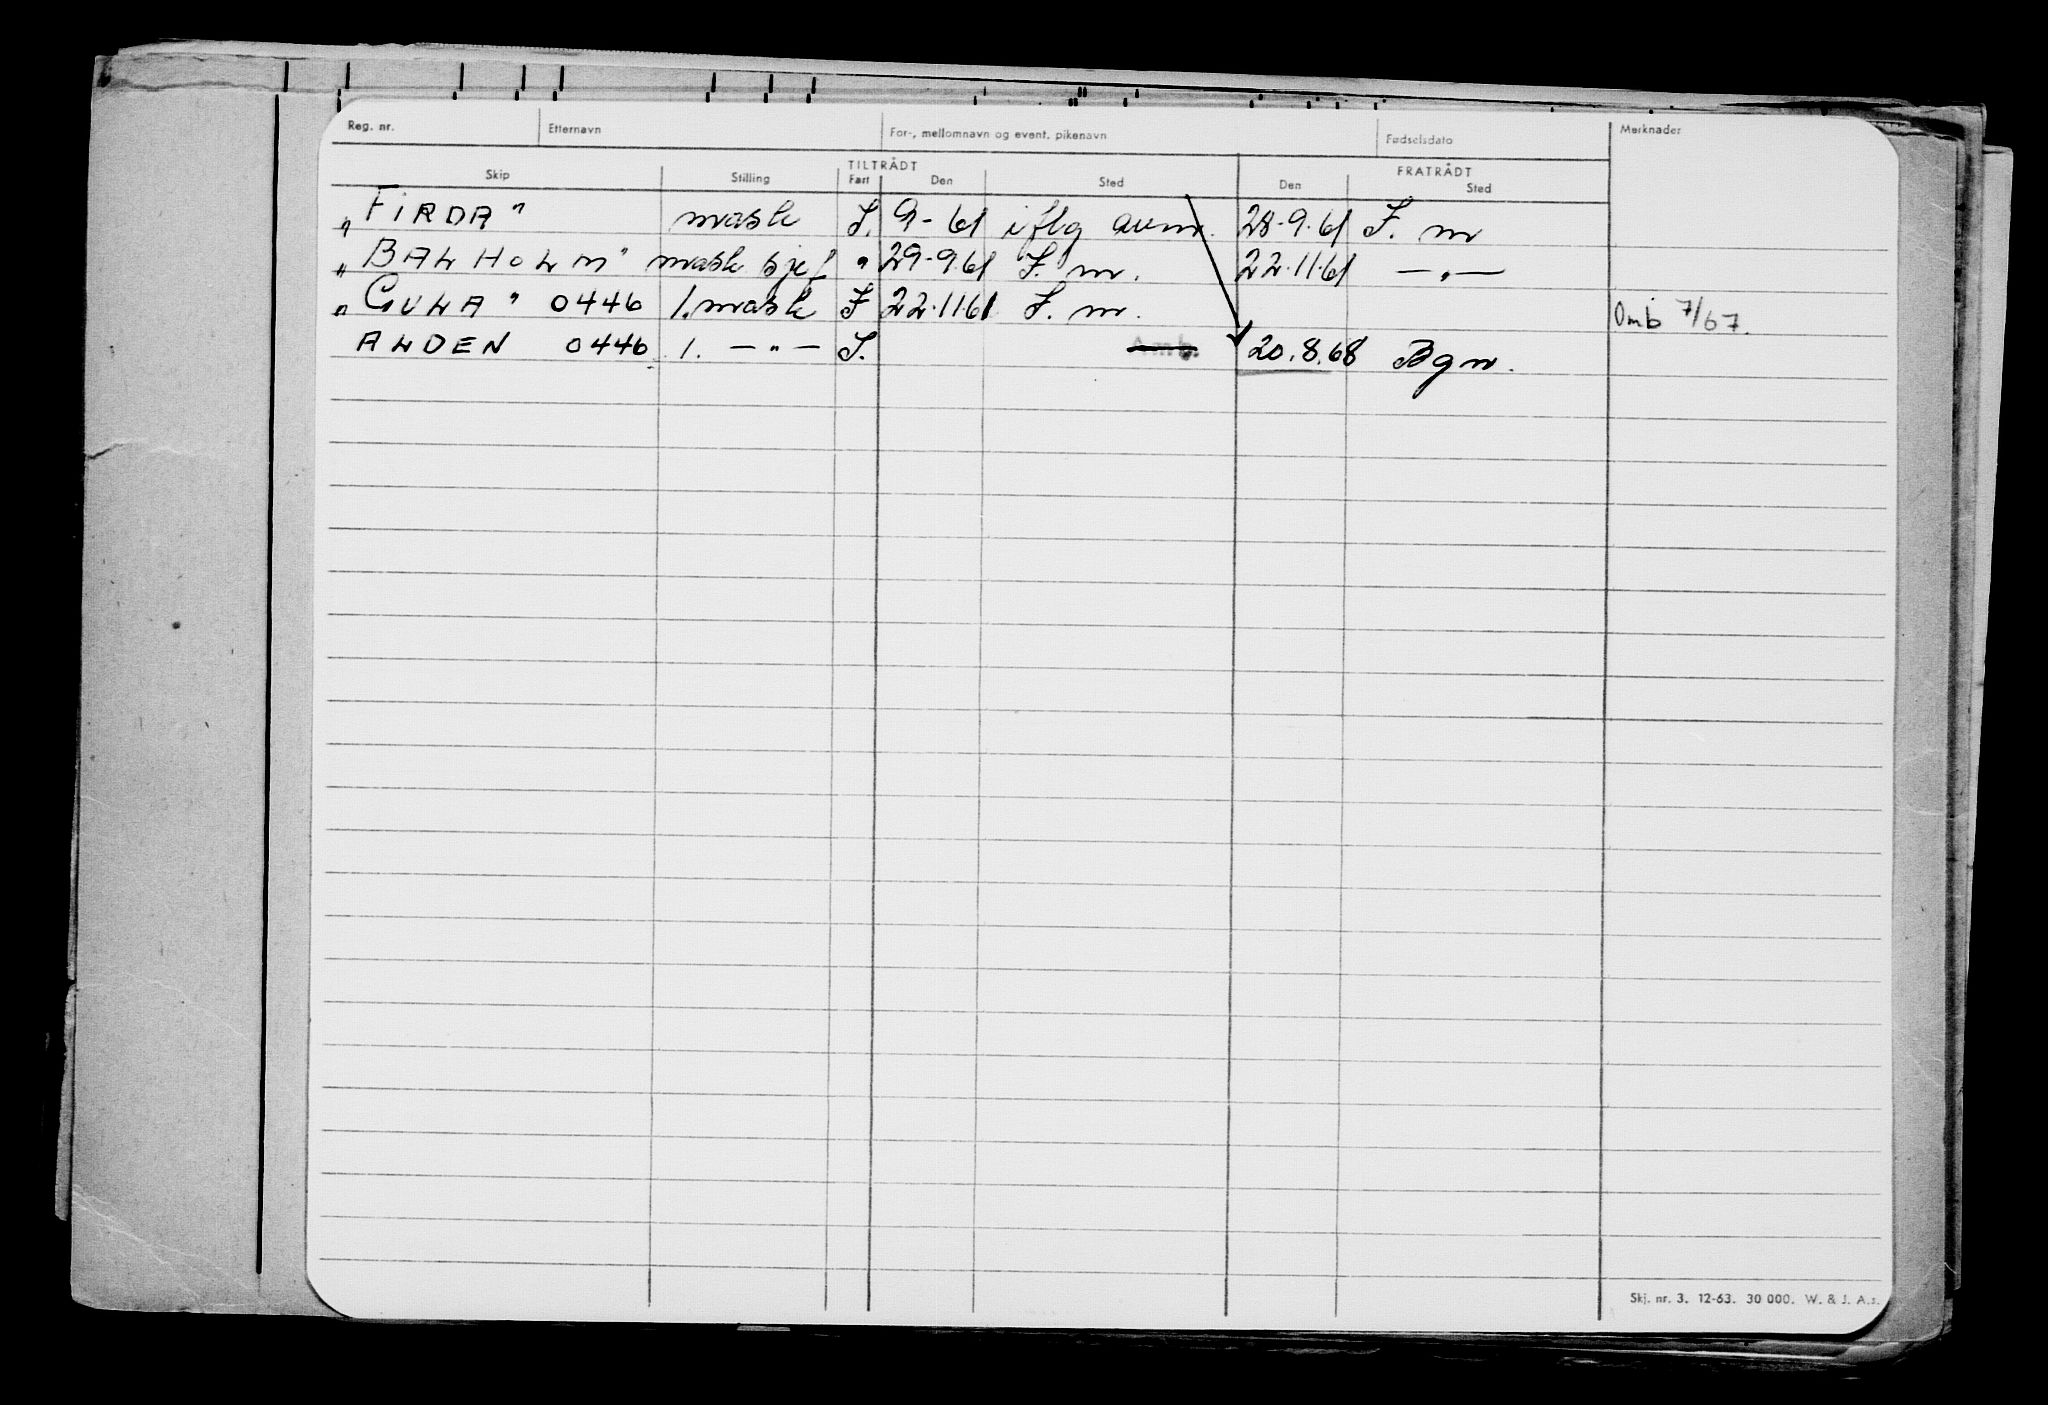 Reg. nr. Etternavn For-, mellomnavn og event. pikenavn Fødselsdato Merknader
TILTRÅDT FRATRÅDT
Skip Stilling Fart Den Sted Den Sted
"FIRDA" mask I. 9-61 iflg avm. 28.9.61 F. m
"BALHOLM" mask sjef " 29-9.61 F. m. 22.11.61 — " —
"GULA" 0446 1. mask I 22.11.61 F. m. Omb 7/67.
ALDEN 0446 1. — " — I. Amb. 20.8.68 Bgn.
Skj. nr. 3. 12-63. 30 000. W. & J. A.s.